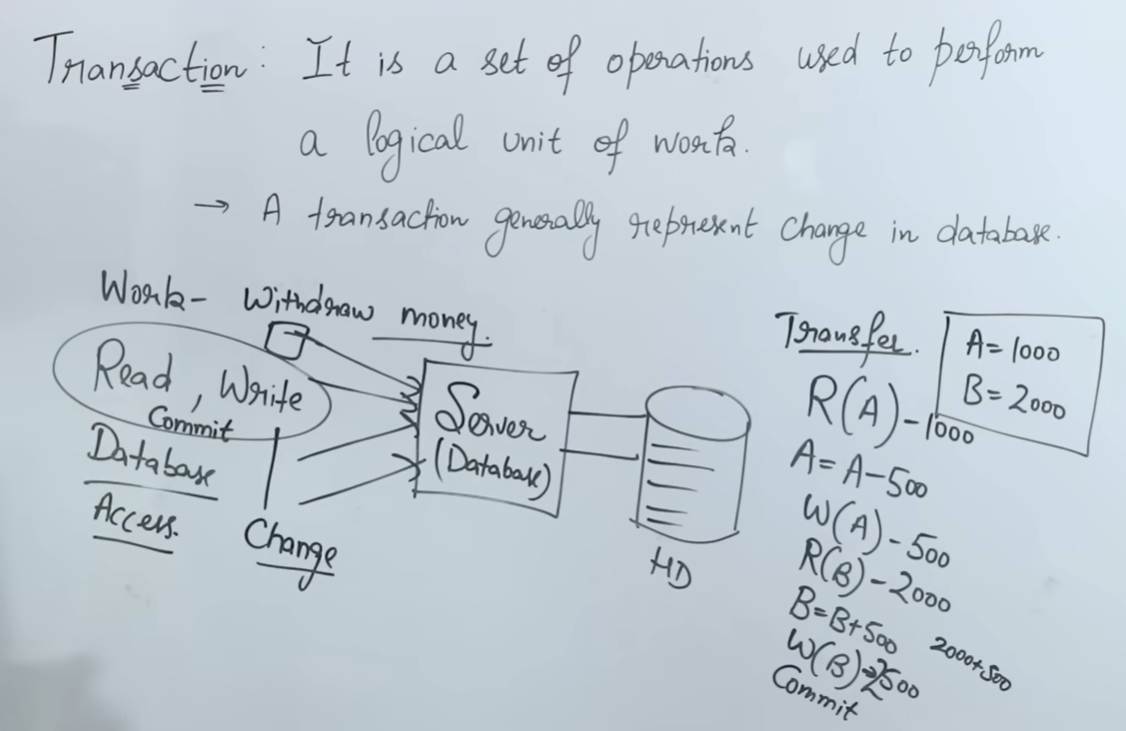 Transaction: It is a set of operations used to perform
a logical unit of work.
→ A transaction generally represent change in database.
Work- Withdraw money.
Read, Write
Commit
Database
Access.
Change
Server
(Database)
HD
Transfer.
A=1000
B=2000
R(A)-1000
A=A-500
W(A)-500
R(B)-2000
B=B+500 2000+500
W(B)-2500
Commit